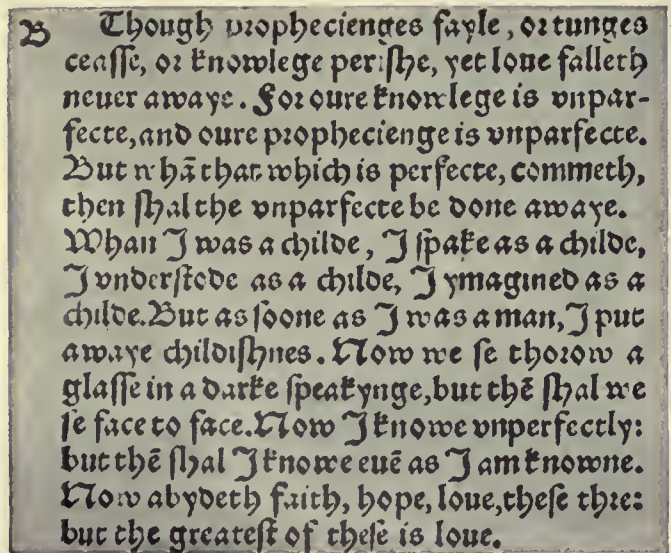 B Though prophecienges fayle, or tunges
ceasse, or knowlege perishe, yet loue falleth
neuer awaye. For oure knowlege is vnpar-
fecte, and oure prophecienge is vnparfecte.
But whā that which is perfecte, commeth,
then shal the vnparfecte be done awaye.
Whan I was a childe, I spake as a childe,
I vnderstode as a childe, I ymagined as a
childe. But as soone as I was a man, I put
awaye childishnes. Now we se thorow a
glasse in a darke speakynge, but thē shal we
se face to face. Now I knowe vnperfectly:
but thē shal I knowe euē as I am knowne.
Now abydeth faith, hope, loue, these thre:
but the greatest of these is loue.